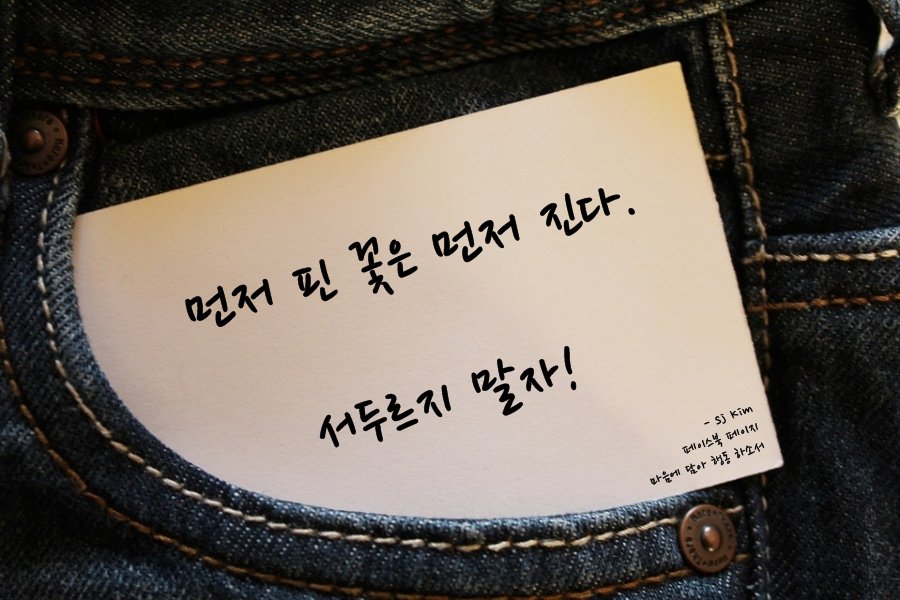 먼저 핀 꽃은 먼저 진다.
서두르지 말자!
- Sj Kim
페이스북 페이지
마음에 담아 행동 하소서